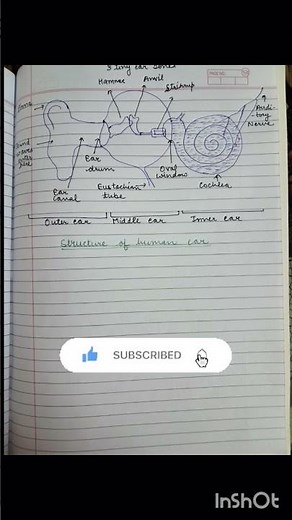 3 Tiny ear bones
PAGE NO.
Hammer Anvil
Stirrup
Pinna
Audi-
tory
Nerve
Sound
waves
Ear
drum
Oval
window
Ear
canal
Eustachian
tube
Cochlea
Outer ear Middle ear Inner ear
Structure of human ear
SUBSCRIBED
InShOt